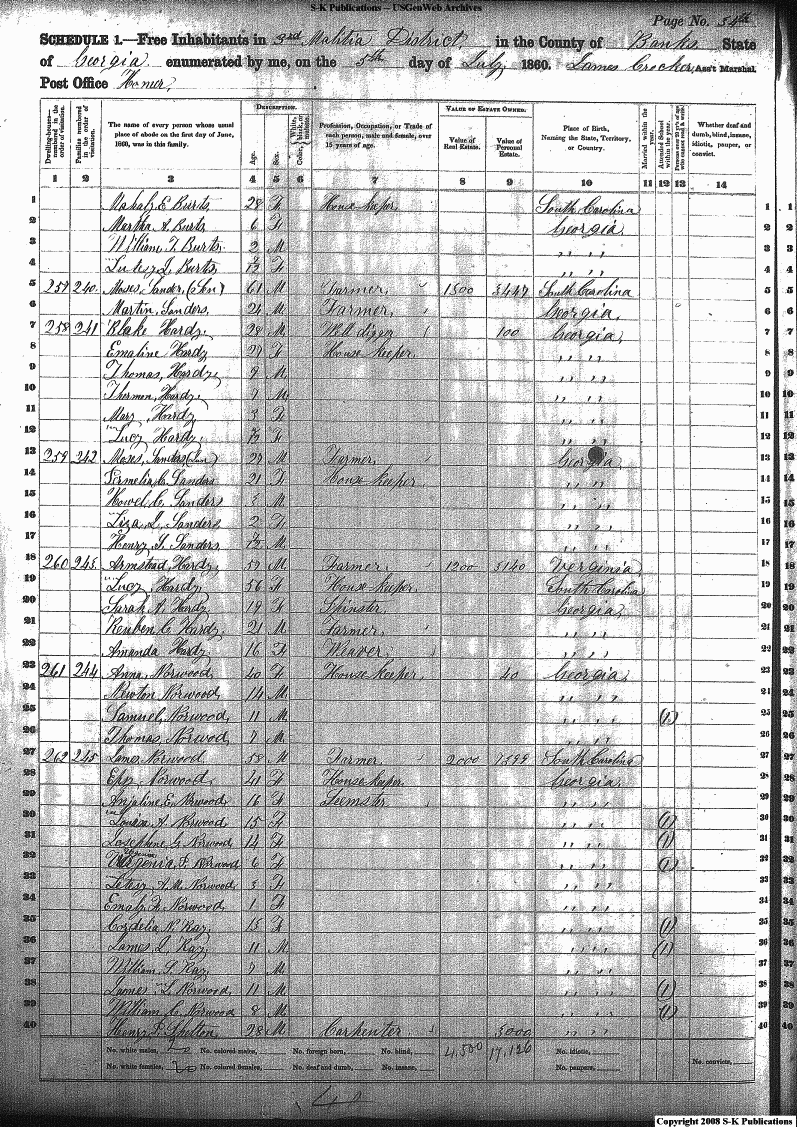 S-K Publications – USGenWeb Archives
Page No. 54th
SCHEDULE 1.—Free Inhabitants in 3rd Malitia District in the County of Banks State
of Georgia enumerated by me, on the 5th day of July 1860. James Crocker, Ass't Marshal.
Post Office Homer,
DESCRIPTION. VALUE OF ESTATE OWNED.
Dwelling-houses—numbered in the order of visitation. Families numbered in the order of visitation. The name of every person whose usual place of abode on the first day of June, 1860, was in this family. Age. Sex. Color, White, black, or mulatto. Profession, Occupation, or Trade of each person, male and female, over 15 years of age. Value of Real Estate. Value of Personal Estate. Place of Birth, Naming the State, Territory, or Country. Married within the year. Attended School within the year. Persons over 20 y'rs of age who cannot read & write. Whether deaf and dumb, blind, insane, idiotic, pauper, or convict.
1 2 3 4 5 6 7 8 9 10 11 12 13 14
1 E. Burts 28 F House keeper South Carolina 1 1
2 Martha A. Burts 6 F Georgia 2 2
3 William T. Burts 2 M " " 3 3
4 Burts F " " 4 4
5 257 240 Moses, Sanders, (Sen) 61 M Farmer 1500 3447 South Carolina 5 5
6 Martin, Sanders 24 M Farmer Georgia 6 6
7 258 241 Blake Hardy, 28 M Well diger 100 Georgia 7 7
8 Emaline Hardy 27 F House keeper " " 8 8
9 Thomas, Hardy, 9 M " " 9 9
10 Hardy, M " " 10 10
11 Mary, Hardy 3 F " " 11 11
12 Lucy Hardy, F " " 12 12
13 259 242 Moses, Sanders, (Jun) 27 M Farmer Georgia 13 13
14 C. Sanders 21 F House keeper " " 14 14
15 Howel C. Sanders 3 M " " 15 15
16 Liza L. Sanders 2 F " " 16 16
17 Henry Sanders M " " 17 17
18 260 243 Armstead, Hardy, 59 M Farmer 1200 3140 Verginia 18 18
19 Lucy Hardy, 56 F House keeper South Carolina 19 19
20 Sarah Hardy, 19 F Spinster Georgia 20 20
21 Reuben C. Hardy, 21 M Farmer " " 21 21
22 Amanda Hardy 16 F Weaver " " 22 22
23 261 244 Anna, Norwood, 40 F House keeper 40 Georgia 23 23
24 Newton Norwood, 14 M " " 24 24
25 Samuel, Norwood, 11 M " " (1) 25 25
26 Thomas, Norwod, 7 M " " 26 26
27 262 245 James, Norwood, 58 M Farmer 2000 South Carolina 27 27
28 Norwood, 41 F House keeper Georgia 28 28
29 Anjaline E. Norwood, 16 F Seemster " " 29 29
30 Louisa A. Norwood 15 F " " (1) 30 30
31 Josephene G. Norwood 14 F " " (1) 31 31
32 F. Norwood 6 F " " (1) 32 32
33 A. M. Norwood 3 F " " 33 33
34 Norwood, 1 F " " 34 34
35 Cordelia Ray, 15 F " " (1) 35 35
36 James L. Ray, 11 M " " (1) 36 36
37 William Ray, 7 M " " 37 37
38 James L. Norwood, 11 M " " (1) 38 38
39 William C. Norwood 8 M " " (1) 39 39
40 Henry Shelton 28 M Carpenter 3000 " " 40 40
No. white males, No. colored males, No. foreign born, No. blind, 4,500 17,126 No. idiotic,
No. white females, 20 No. colored females, No. deaf and dumb, No. insane, No. paupers, No. convicts,
40
Copyright 2008 S-K Publications